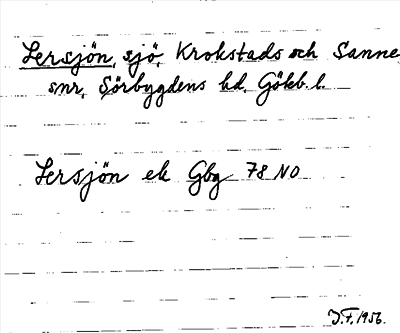 Lersjön, sjö, Krokstads och Sanne
snr, Sörbygdens hd, Göteb. l.
Lersjön ek Gbg 78 NO
J.F. 1956.